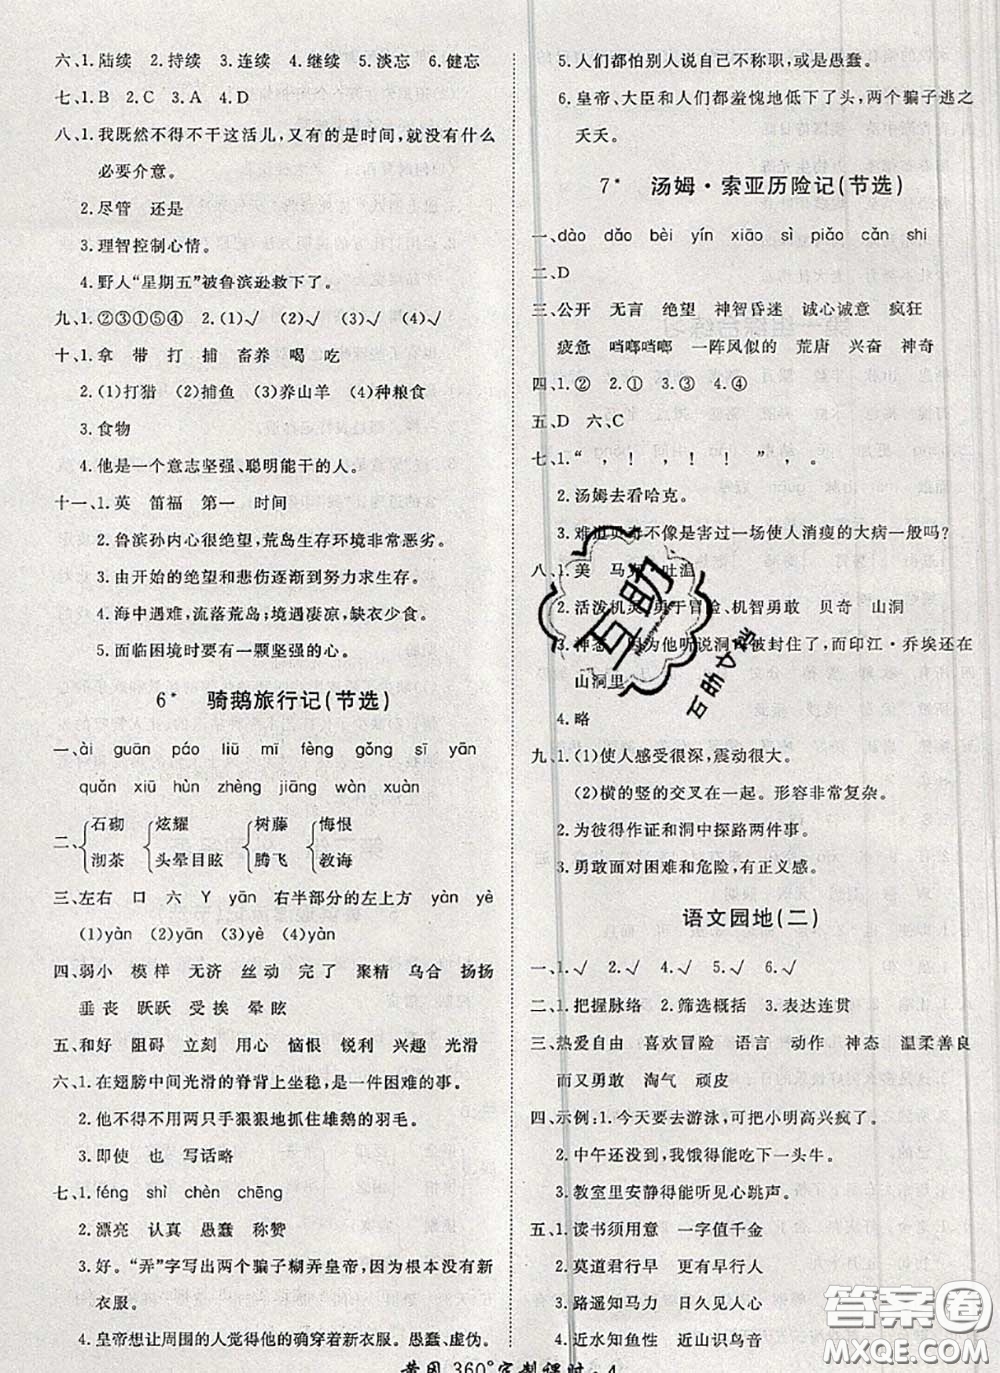 六、1.陆续 2.持续 3.连续 4.继续 5.淡忘 6.健忘
七、1.B 2.C 3.A 4.D
八、1.我既然不得不干这活儿,又有的是时间,就没有什么
必要介意。
2.尽管 还是
3.理智控制心情。
4.野人“星期五”被鲁滨逊救下了。
九、1.②③①⑤④ 2.(1)√ (2)√ (3)√
十、1.拿 带 打 捕 畜养 喝 吃
2.(1)打猎 (2)捕鱼 (3)养山羊 (4)种粮食
3.食物
4.他是一个意志坚强、聪明能干的人。
十一、1.英 笛福 第一 时间
2.鲁滨孙内心很绝望,荒岛生存环境非常恶劣。
3.由开始的绝望和悲伤逐渐到努力求生存。
4.海中遇难,流落荒岛;境遇凄凉,缺衣少食。
5.面临困境时要有一颗坚强的心。
6* 骑鹅旅行记(节选)
一、ài guān páo liū mī fèng gǒng sī yān
quǎn xiū hùn zhèng jiāng tāng niǔ
二、石砌 炫耀 树藤 悔恨
沏茶 头晕目眩 腾飞 教诲
三、左右 口 六 Y yān 右半部分的左上方 yàn yè
(1)yàn (2)yān (3)yè
四、弱小 模样 无济 丝动 完了 聚精 乌合 扬扬
垂丧 跃跃 受挨 晕眩
五、和好 阻碍 立刻 用心 恼恨 锐利 兴趣 光滑
六、1.在翅膀中间光滑的脊背上坐稳,是一件困难的事。
2.他不得不用两只手狠狠地抓住雄鹅的羽毛。
3.即使 也 写话略
七、1.féng shì chèn chēng
2.漂亮 认真 愚蠢 称赞
3.好。“弄”字写出两个骗子糊弄皇帝,根本没有新
衣服。
4.皇帝想让周围的人觉得他的确穿着新衣服。愚蠢、虚伪。
5.人们都怕别人说自己不称职,或者是愚蠢。
6.皇帝、大臣和人们都羞愧地低下了头,两个骗子逃之
夭夭。
7* 汤姆·索亚历险记(节选)
一、dào dǎo bèi yín xiāo sì piǎo cǎn shi
二、D
三、公开 无言 绝望 神智昏迷 诚心诚意 疯狂
疲惫 当啷当啷 一阵风似的 荒唐 兴奋 神奇
四、1.② 2.① 3.③ 4.④
五、D 六、C
七、1.“ , ! , ! ! ” , 。
2.汤姆去看哈克。
3.难道贝奇不像是害过一场使人消瘦的大病一般吗?
八、1.美 马克·吐温
2.活泼机灵 勇于冒险、机智勇敢 贝奇 山洞
3.神态 因为他听说洞口被封住了,而印江·乔埃还在
山洞里。
4.略
九、1.(1)使人感受很深,震动很大。
(2)横的竖的交叉在一起。形容非常复杂。
2.为彼得作证和洞中探路两件事。
3.勇敢面对困难和危险,有正义感。
语文园地(二)
一、1.√ 2.√ 4.√ 5.√ 6.√
二、1.把握脉络 2.筛选概括 3.表达连贯
三、热爱自由 喜欢冒险 语言 动作 神态 温柔善良
而又勇敢 淘气 顽皮
四、示例:1.今天要去游泳,可把小明高兴疯了。
2.中午还没放学,我饿得能吃下一头牛。
3.教室里安静得能听见心跳声。
五、1.读书须用意 一字值千金
2.莫道君行早 更有早行人
3.路遥知马力 日久见人心
4.近水知鱼性 近山识鸟音
黄冈 360°定制课时·4
互助
互助文档
答案圈
MXQE.COM